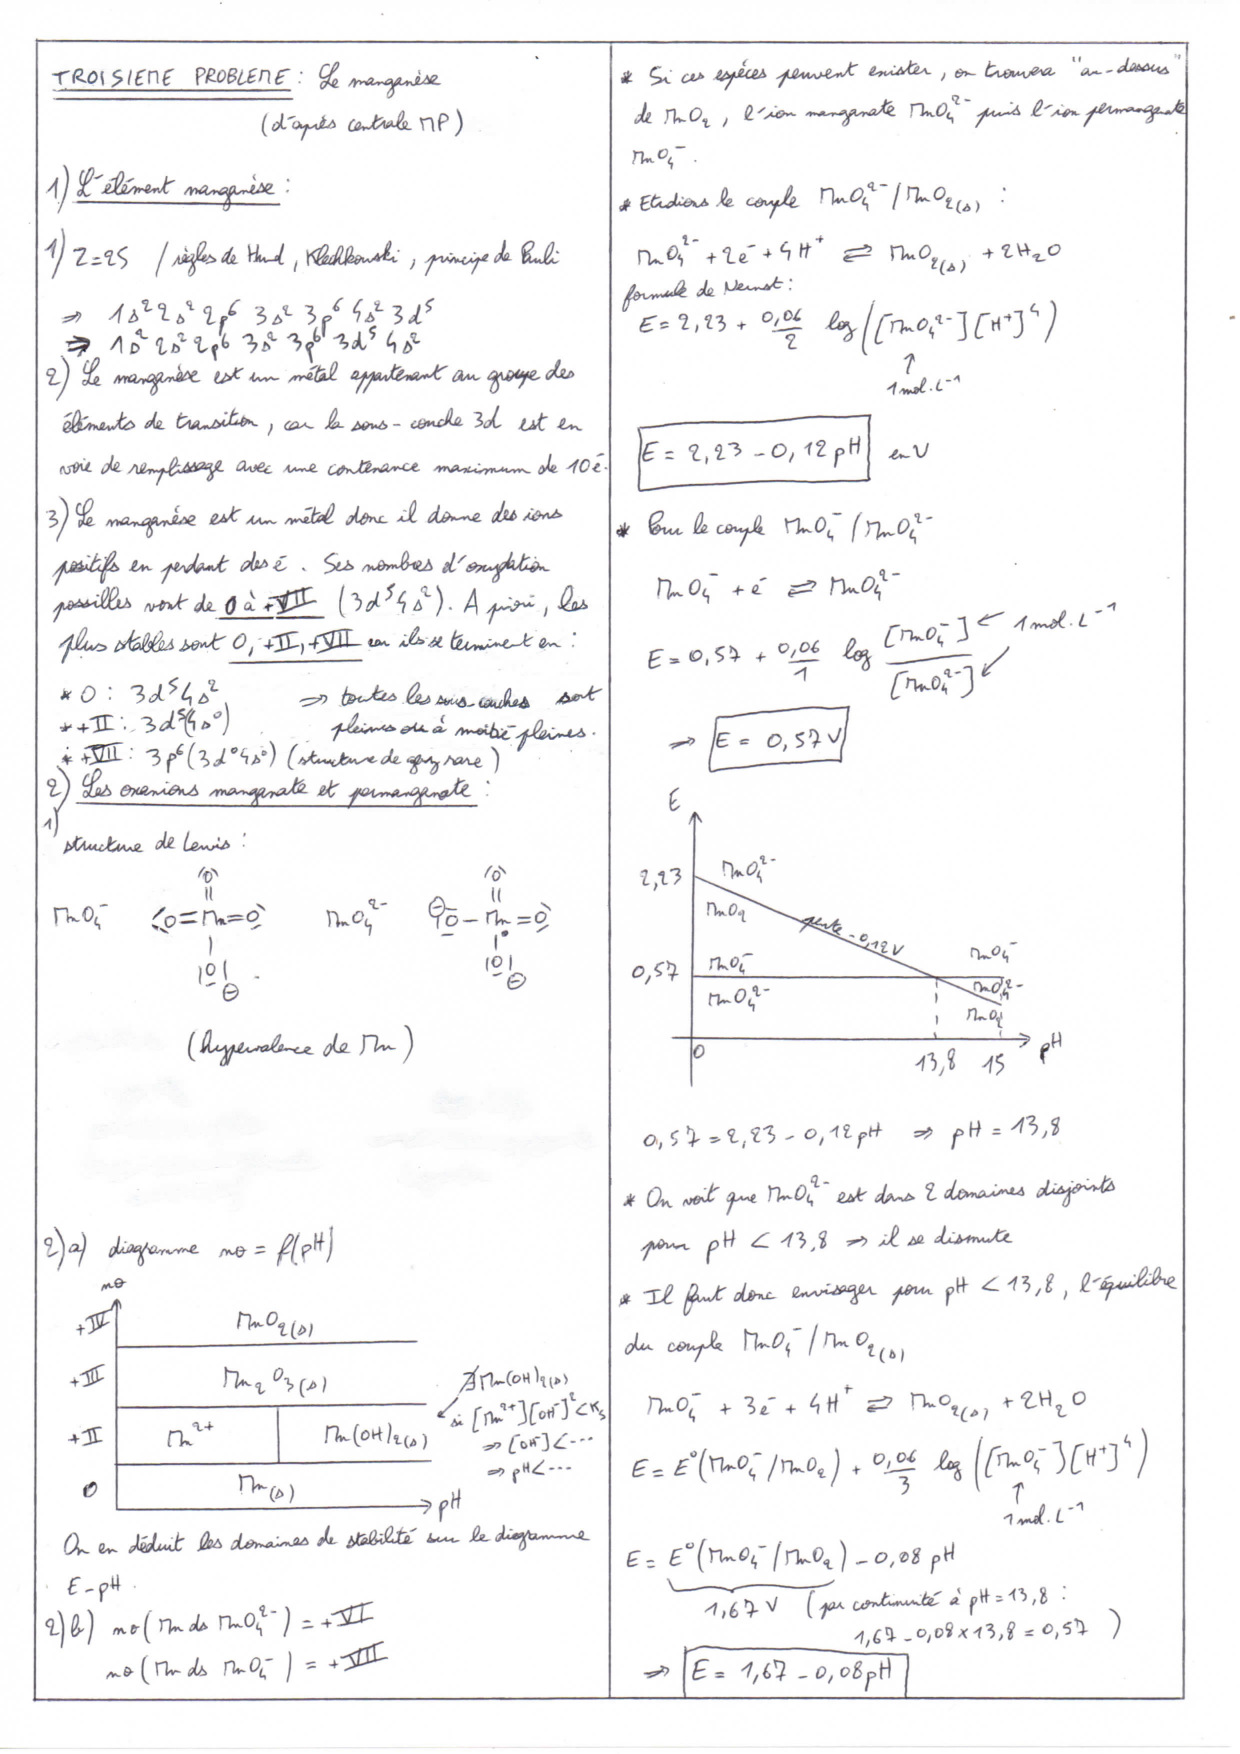 TROISIEME PROBLEME : Le manganèse
(d'après centrale MP)
1) L'élément manganèse :
1) Z=25 / règles de Hund, Klechkowski, principe de Pauli
⇒ 1s² 2s² 2p⁶ 3s² 3p⁶ 4s² 3d⁵
⇒ 1s² 2s² 2p⁶ 3s² 3p⁶ 3d⁵ 4s²
2) Le manganèse est un métal appartenant au groupe des
éléments de transition, car la sous-couche 3d est en
voie de remplissage avec une contenance maximum de 10 é.
3) Le manganèse est un métal donc il donne des ions
positifs en perdant des é. Ses nombres d'oxydation
possibles vont de 0 à +VII (3d⁵4s²). A priori, les
plus stables sont 0, +II, +VII car ils se terminent en :
* 0 : 3d⁵4s² ⇒ toutes les sous-couches sont
* +II : 3d⁵(4s⁰) pleines ou à moitié pleines.
* +VII : 3p⁶(3d⁰4s⁰) (structure de gaz rare)
2) Les oxanions manganate et permanganate :
1)
structure de Lewis :
MnO₄⁻ ⟨O=Mn=O⟩ MnO₄²⁻ |O–Mn=O⟩
(hypervalence de Mn)
2)a) diagramme no = f(pH)
no
+IV MnO₂(s)
+III Mn₂O₃(s) ∄ Mn(OH)₂(s)
si [Mn²⁺][OH⁻]² < Ks
+II Mn²⁺ Mn(OH)₂(s) ⇒ [OH⁻] < ...
⇒ pH < ...
0 Mn(s)
pH
On en déduit les domaines de stabilité sur le diagramme
E-pH.
2)b) no(Mn ds MnO₄²⁻) = +VI
no(Mn ds MnO₄⁻) = +VII
* Si ces espèces peuvent exister, on trouvera "au-dessus"
de MnO₂, l'ion manganate MnO₄²⁻ puis l'ion permanganate
MnO₄⁻.
* Etudions le couple MnO₄²⁻/MnO₂(s) :
MnO₄²⁻ + 2é + 4H⁺ ⇌ MnO₂(s) + 2H₂O
formule de Nernst :
E = 2,23 + 0,06/2 log([MnO₄²⁻][H⁺]⁴)
↑
1 mol.L⁻¹
E = 2,23 - 0,12 pH en V
* Pour le couple MnO₄⁻/MnO₄²⁻
MnO₄⁻ + é ⇌ MnO₄²⁻
E = 0,57 + 0,06/1 log [MnO₄⁻]/[MnO₄²⁻] ← 1 mol.L⁻¹
⇒ E = 0,57 V
E
2,23 MnO₄²⁻
MnO₂ pente -0,12 V
MnO₄⁻
0,57 MnO₄⁻ MnO₄²⁻
MnO₄²⁻ MnO₂
0 13,8 15 pH
0,57 = 2,23 - 0,12 pH ⇒ pH = 13,8
* On voit que MnO₄²⁻ est dans 2 domaines disjoints
pour pH < 13,8 ⇒ il se dismute
* Il faut donc envisager pour pH < 13,8, l'équilibre
du couple MnO₄⁻/MnO₂(s)
MnO₄⁻ + 3é + 4H⁺ ⇌ MnO₂(s) + 2H₂O
E = E°(MnO₄⁻/MnO₂) + 0,06/3 log([MnO₄⁻][H⁺]⁴)
↑
1 mol.L⁻¹
E = E°(MnO₄⁻/MnO₂) - 0,08 pH
1,67 V (par continuité à pH = 13,8 :
1,67 - 0,08 × 13,8 = 0,57 )
⇒ E = 1,67 - 0,08 pH